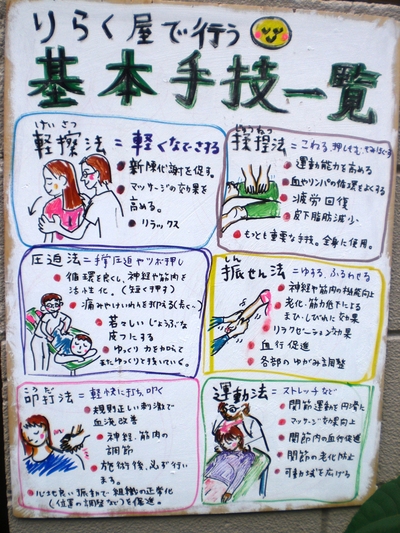 りらく屋で行う
基本手技一覧
けいさつ
軽擦法=軽くなでさする
新陳代謝を促す。
マッサージの効果を
高める。
リラックス
揉捏法=こねる 押しもむ
運動能力を高める
血やリンパの循環をよくする
疲労回復
皮下脂肪減少
もっとも重要な手技。全身に使用。
圧迫法=掌圧迫やツボ押し
循環を良くし、神経や筋肉を
活性化。(短く押す)
痛みやけいれんを抑える(長く〜)
若々しいじょうぶな
皮フにする
ゆっくり力を加えて
またゆっくりと抜いていく。
しん
振せん法=ゆする、ふるわせる
神経や筋肉の機能向上
老化・筋力低下による
まひ・しびれに効果
リラクゼーション効果
血行促進
各部のゆがみ調整
こうだ
叩打法=軽快に打ち、叩く
規則正しい刺激で
血流改善
神経、筋肉の
調節
施術後、必ず行い
ます。
心地良い振動で組織の正常化
(位置の調整など)を促進。
運動法=ストレッチなど
関節運動を円滑に
マッサージ効果向上
関節内の血行促進
関節の老化防止
可動域を広げる